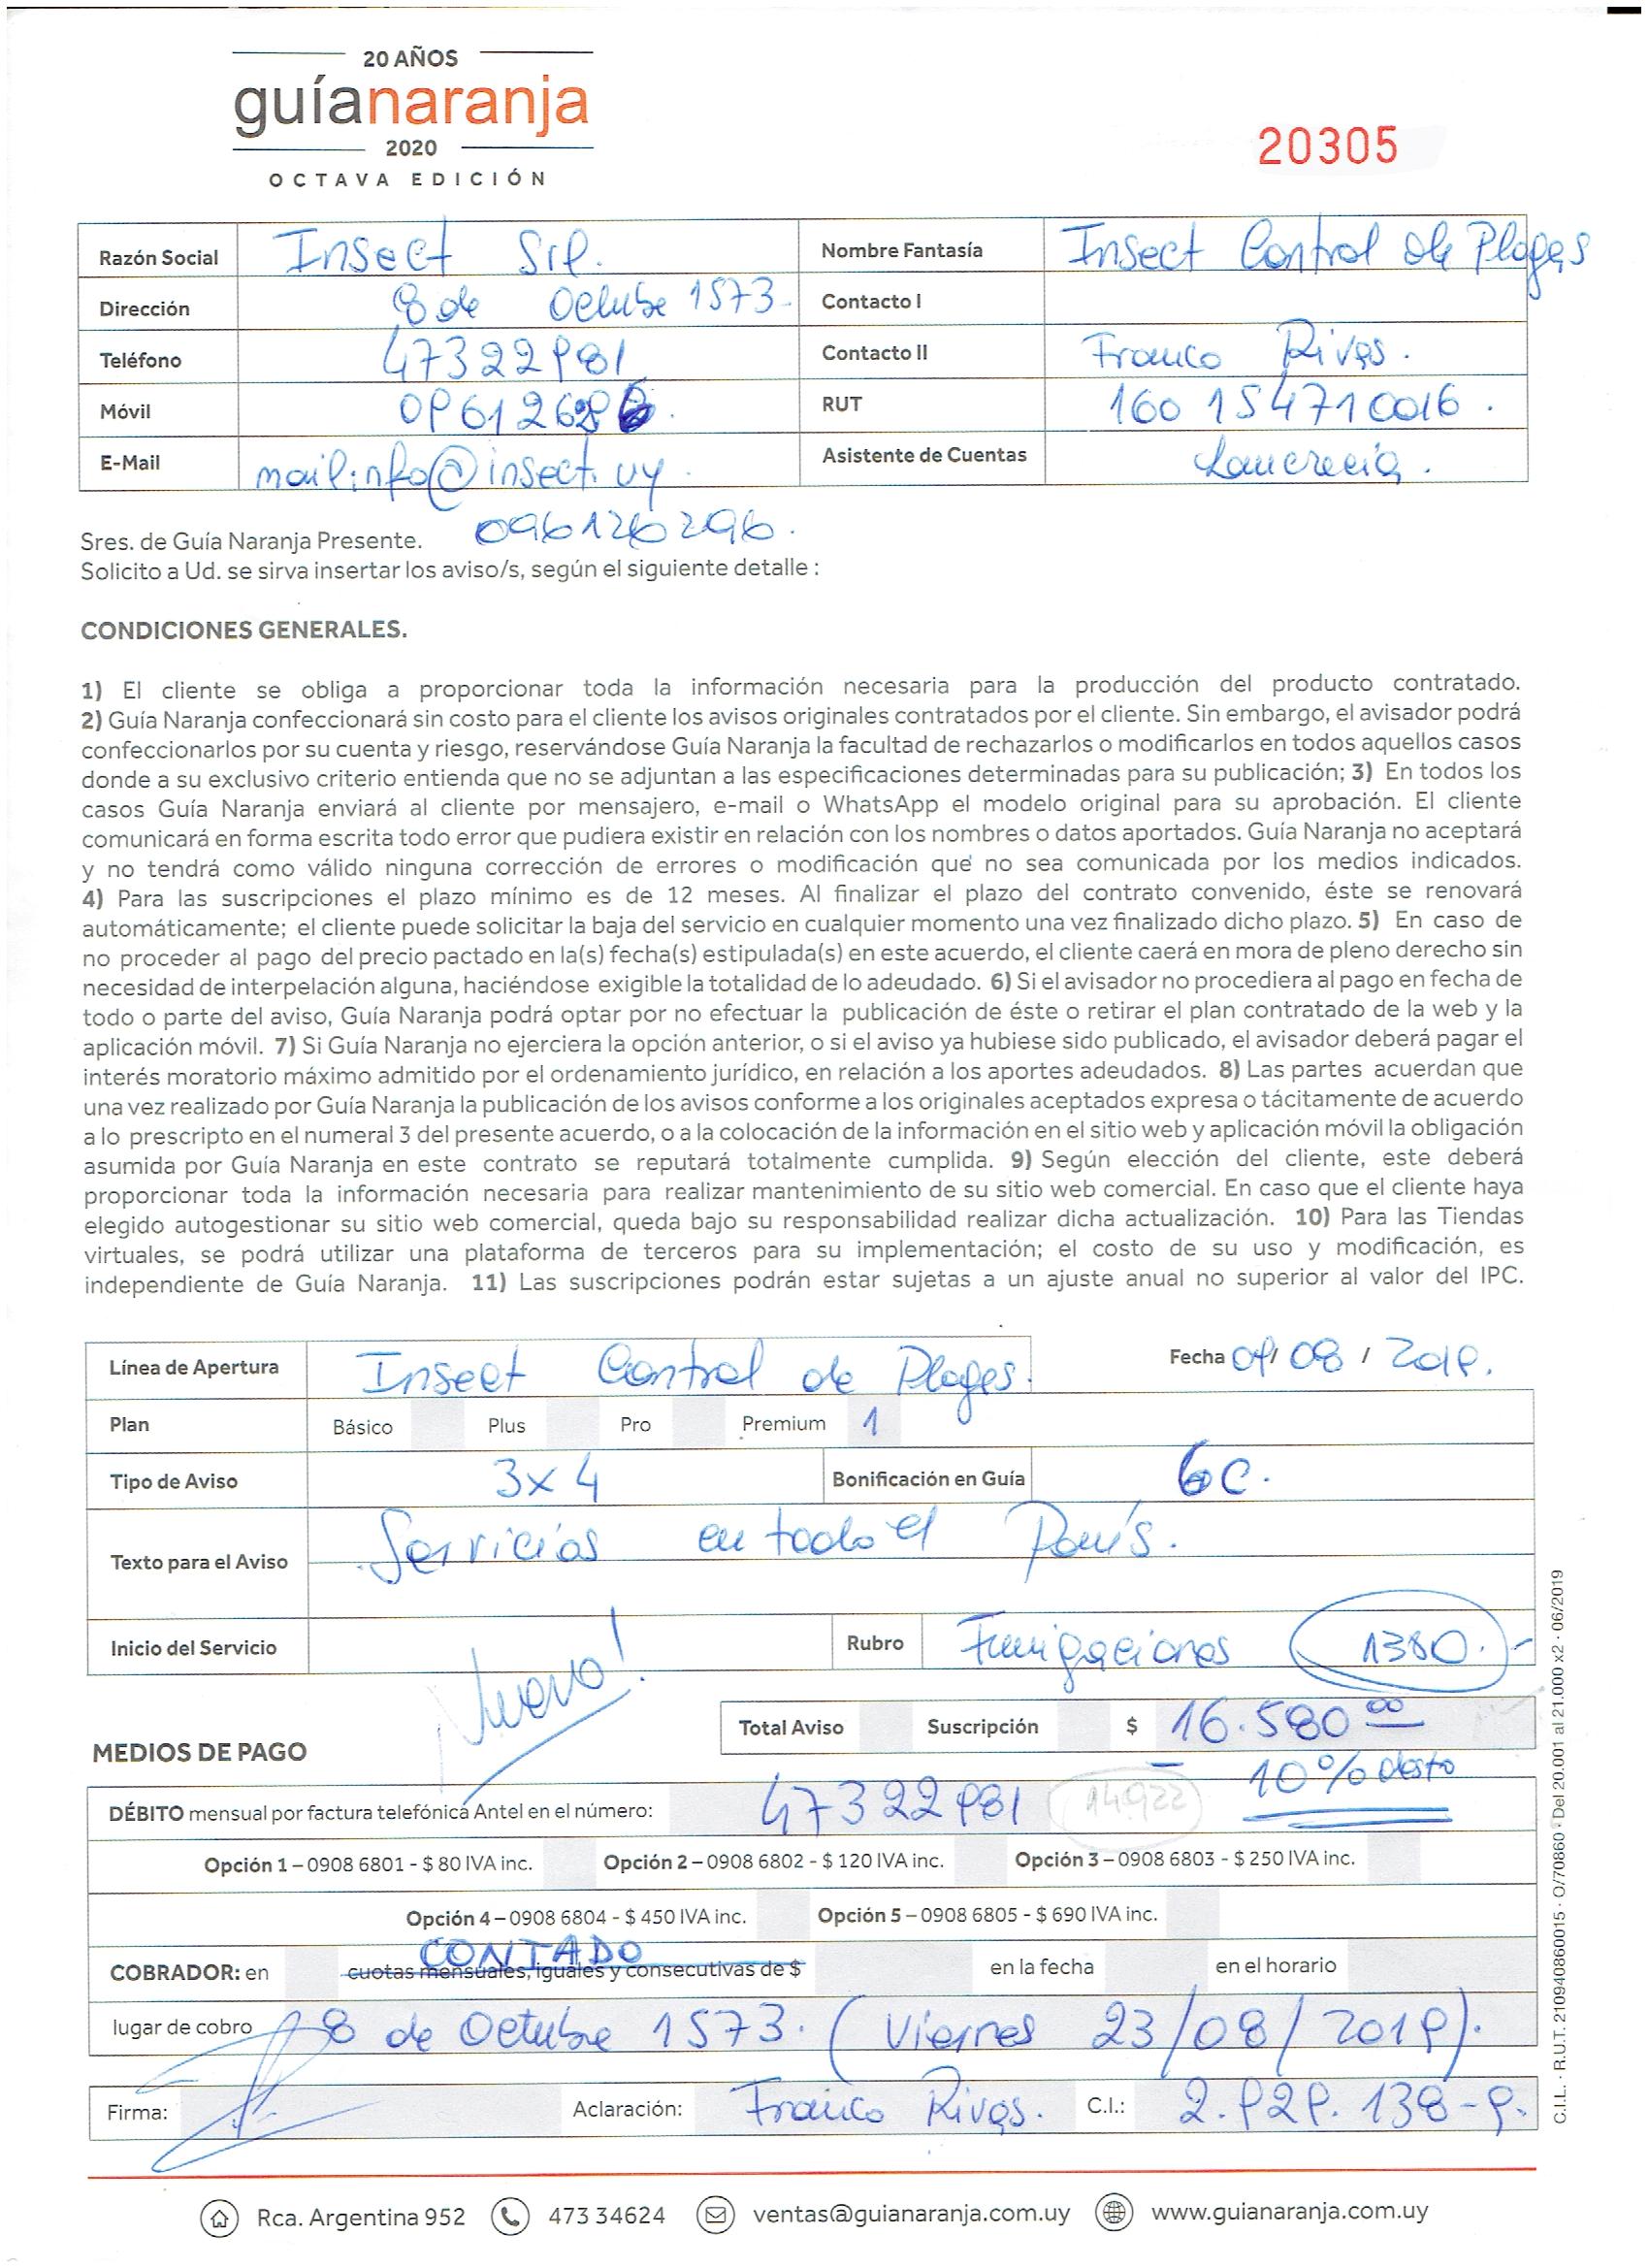 20 AÑOS
guíanaranja
2020
OCTAVA EDICIÓN
20305
Razón Social Insect Srl. Nombre Fantasía Insect Control de Plagas
Dirección 8 de Octubre 1573 Contacto I
Teléfono 47322981 Contacto II Franco Rivas.
Móvil RUT 160154710016.
E-Mail mailinfo@insect.uy Asistente de Cuentas
096126296.
Sres. de Guía Naranja Presente.
Solicito a Ud. se sirva insertar los aviso/s, según el siguiente detalle :
CONDICIONES GENERALES.
1) El cliente se obliga a proporcionar toda la información necesaria para la producción del producto contratado.
2) Guía Naranja confeccionará sin costo para el cliente los avisos originales contratados por el cliente. Sin embargo, el avisador podrá
confeccionarlos por su cuenta y riesgo, reservándose Guía Naranja la facultad de rechazarlos o modificarlos en todos aquellos casos
donde a su exclusivo criterio entienda que no se adjuntan a las especificaciones determinadas para su publicación; 3) En todos los
casos Guía Naranja enviará al cliente por mensajero, e-mail o WhatsApp el modelo original para su aprobación. El cliente
comunicará en forma escrita todo error que pudiera existir en relación con los nombres o datos aportados. Guía Naranja no aceptará
y no tendrá como válido ninguna corrección de errores o modificación que no sea comunicada por los medios indicados.
4) Para las suscripciones el plazo mínimo es de 12 meses. Al finalizar el plazo del contrato convenido, éste se renovará
automáticamente; el cliente puede solicitar la baja del servicio en cualquier momento una vez finalizado dicho plazo. 5) En caso de
no proceder al pago del precio pactado en la(s) fecha(s) estipulada(s) en este acuerdo, el cliente caerá en mora de pleno derecho sin
necesidad de interpelación alguna, haciéndose exigible la totalidad de lo adeudado. 6) Si el avisador no procediera al pago en fecha de
todo o parte del aviso, Guía Naranja podrá optar por no efectuar la publicación de éste o retirar el plan contratado de la web y la
aplicación móvil. 7) Si Guía Naranja no ejerciera la opción anterior, o si el aviso ya hubiese sido publicado, el avisador deberá pagar el
interés moratorio máximo admitido por el ordenamiento jurídico, en relación a los aportes adeudados. 8) Las partes acuerdan que
una vez realizado por Guía Naranja la publicación de los avisos conforme a los originales aceptados expresa o tácitamente de acuerdo
a lo prescripto en el numeral 3 del presente acuerdo, o a la colocación de la información en el sitio web y aplicación móvil la obligación
asumida por Guía Naranja en este contrato se reputará totalmente cumplida. 9) Según elección del cliente, este deberá
proporcionar toda la información necesaria para realizar mantenimiento de su sitio web comercial. En caso que el cliente haya
elegido autogestionar su sitio web comercial, queda bajo su responsabilidad realizar dicha actualización. 10) Para las Tiendas
virtuales, se podrá utilizar una plataforma de terceros para su implementación; el costo de su uso y modificación, es
independiente de Guía Naranja. 11) Las suscripciones podrán estar sujetas a un ajuste anual no superior al valor del IPC.
Línea de Apertura Insect Control de Plagas. Fecha 09/ 08 / 2019.
Plan Básico Plus Pro Premium 1
Tipo de Aviso 3x4 Bonificación en Guía 6c.
Texto para el Aviso Servicios en todo el País.
Inicio del Servicio Nuevo! Rubro Fumigaciones 1380.-
Total Aviso Suscripción $ 16.580 00
MEDIOS DE PAGO
10% desto
DÉBITO mensual por factura telefónica Antel en el número: 47322981 14922
Opción 1 – 0908 6801 - $ 80 IVA inc. Opción 2 – 0908 6802 - $ 120 IVA inc. Opción 3 – 0908 6803 - $ 250 IVA inc.
Opción 4 – 0908 6804 - $ 450 IVA inc. Opción 5 – 0908 6805 - $ 690 IVA inc.
CONTADO
COBRADOR: en cuotas mensuales, iguales y consecutivas de $ en la fecha en el horario
lugar de cobro 8 de Octubre 1573. (Viernes 23/08/2019).
Firma: Aclaración: Franco Rivas. C.I.: 2.929.138-9.
Rca. Argentina 952 473 34624 ventas@guianaranja.com.uy www.guianaranja.com.uy
C.I.L. · R.U.T. 210940860015 · O/70860 · Del 20.001 al 21.000 x2 · 06/2019